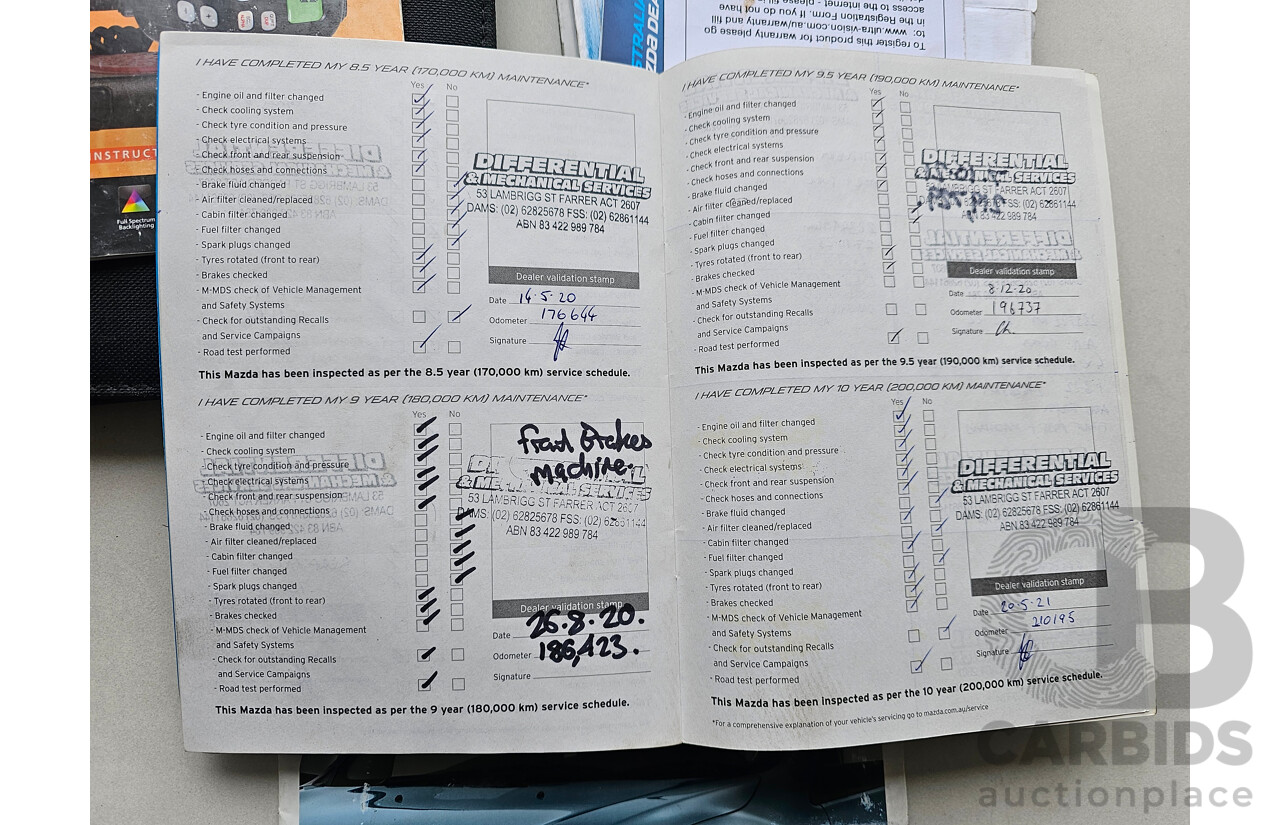 INSTRUCT
Full Spectrum
Backlighting
STRALIA
ZDA DEA
To register this product for warranty please go
to: www.ultra-vision.com.au/warranty and fill
in the Registration Form. If you do not have
access to the internet - please
I HAVE COMPLETED MY 8.5 YEAR (170,000 KM) MAINTENANCE*
Yes No
- Engine oil and filter changed
- Check cooling system
- Check tyre condition and pressure
- Check electrical systems
- Check front and rear suspension
- Check hoses and connections
- Brake fluid changed
- Air filter cleaned/replaced
- Cabin filter changed
- Fuel filter changed
- Spark plugs changed
- Tyres rotated (front to rear)
- Brakes checked
- M-MDS check of Vehicle Management
and Safety Systems
- Check for outstanding Recalls
and Service Campaigns
- Road test performed
DIFFERENTIAL
& MECHANICAL SERVICES
53 LAMBRIGG ST FARRER ACT 2607
DAMS: (02) 62825678 FSS: (02) 62861144
ABN 83 422 989 784
Dealer validation stamp
Date 14.5.20
Odometer 176644
Signature
This Mazda has been inspected as per the 8.5 year (170,000 km) service schedule.
I HAVE COMPLETED MY 9 YEAR (180,000 KM) MAINTENANCE*
Yes No
- Engine oil and filter changed
- Check cooling system
- Check tyre condition and pressure
- Check electrical systems
- Check front and rear suspension
- Check hoses and connections
- Brake fluid changed
- Air filter cleaned/replaced
- Cabin filter changed
- Fuel filter changed
- Spark plugs changed
- Tyres rotated (front to rear)
- Brakes checked
- M-MDS check of Vehicle Management
and Safety Systems
- Check for outstanding Recalls
and Service Campaigns
- Road test performed
Front Brakes
Machine.
& MECHANICAL SERVICES
53 LAMBRIGG ST FARRER ACT 2607
DAMS: (02) 62825678 FSS: (02) 62861144
ABN 83 422 989 784
Dealer validation stamp
Date 26.8.20.
Odometer 186,423.
Signature
This Mazda has been inspected as per the 9 year (180,000 km) service schedule.
I HAVE COMPLETED MY 9.5 YEAR (190,000 KM) MAINTENANCE*
Yes No
- Engine oil and filter changed
- Check cooling system
- Check tyre condition and pressure
- Check electrical systems
- Check front and rear suspension
- Check hoses and connections
- Brake fluid changed
- Air filter cleaned/replaced
- Cabin filter changed
- Fuel filter changed
- Spark plugs changed
- Tyres rotated (front to rear)
- Brakes checked
- M-MDS check of Vehicle Management
and Safety Systems
- Check for outstanding Recalls
and Service Campaigns
- Road test performed
DIFFERENTIAL
& MECHANICAL SERVICES
53 LAMBRIGG ST FARRER ACT 2607
FSS: (02) 62861144
ABN 83 422 989 784
Dealer validation stamp
Date 8.12.20
Odometer 196737
Signature
This Mazda has been inspected as per the 9.5 year (190,000 km) service schedule.
I HAVE COMPLETED MY 10 YEAR (200,000 KM) MAINTENANCE*
Yes No
- Engine oil and filter changed
- Check cooling system
- Check tyre condition and pressure
- Check electrical systems
- Check front and rear suspension
- Check hoses and connections
- Brake fluid changed
- Air filter cleaned/replaced
- Cabin filter changed
- Fuel filter changed
- Spark plugs changed
- Tyres rotated (front to rear)
- Brakes checked
- M-MDS check of Vehicle Management
and Safety Systems
- Check for outstanding Recalls
and Service Campaigns
- Road test performed
DIFFERENTIAL
& MECHANICAL SERVICES
53 LAMBRIGG ST FARRER ACT 2607
DAMS: (02) 62825678 FSS: (02) 62861144
ABN 83 422 989 784
Dealer validation stamp
Date 20.5.21
Odometer 210195
Signature
This Mazda has been inspected as per the 10 year (200,000 km) service schedule.
*For a comprehensive explanation of your vehicle's servicing go to mazda.com.au/service
B
CARBIDS
auctionplace